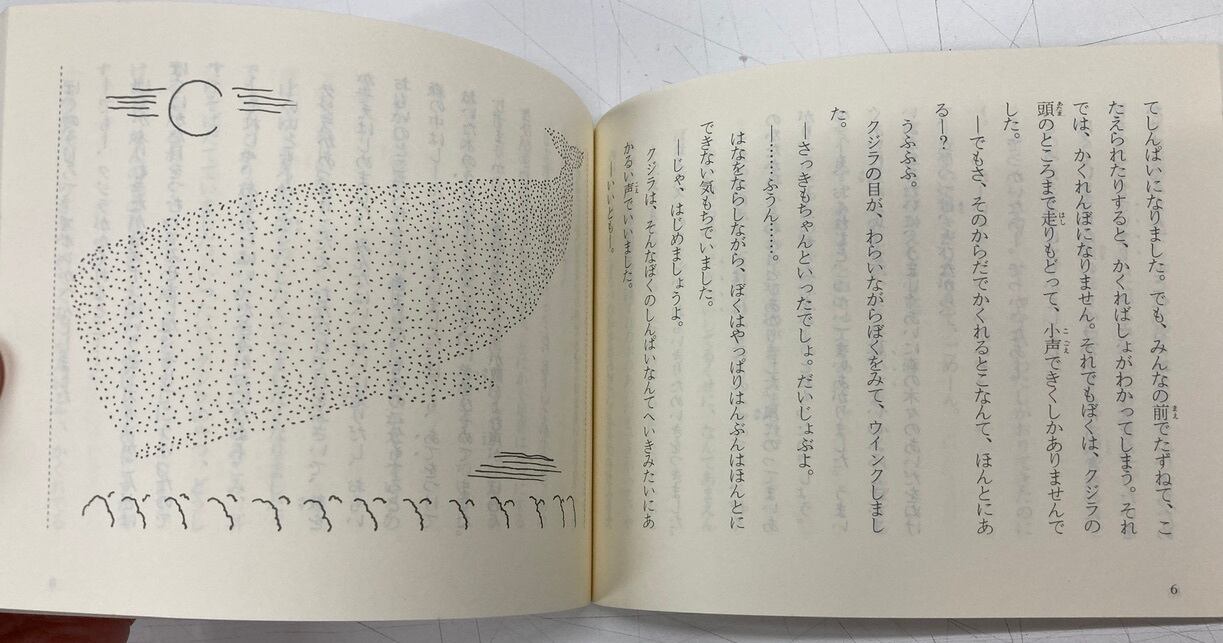 てしんぱいになりました。でも、みんなの前でたずねて、こ
たえられたりすると、かくればしょがわかってしまう。それ
では、かくれんぼになりません。それでもぼくは、クジラの
頭のところまで走りもどって、小声できくしかありませんで
した。
―でもさ、そのからだでかくれるとこなんて、ほんとにあ
るー?
うふふふ。
クジラの目が、わらいながらぼくをみて、ウインクしまし
た。
―さっきもちゃんといったでしょ。だいじょぶよ。
―……ふうん……。
はなをならしながら、ぼくはやっぱりはんぶんはほんとに
できない気もちでいました。
―じゃ、はじめましょうよ。
クジラは、そんなぼくのしんぱいなんてへいきみたいにあ
かるい声でいいました。
―いいともー。
6